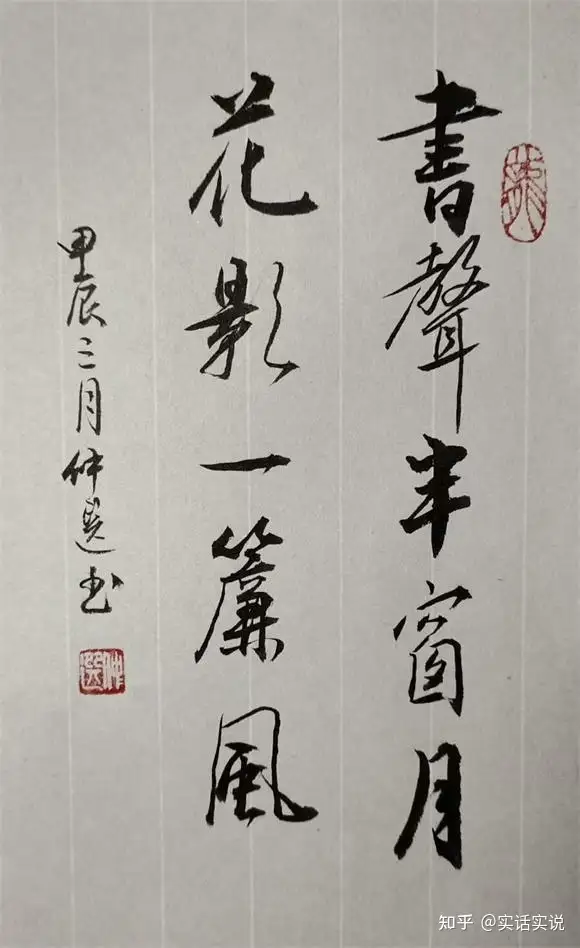 書聲半窗月
花影一簾風
甲辰三月仲選书
仲選
知乎 @实话实说